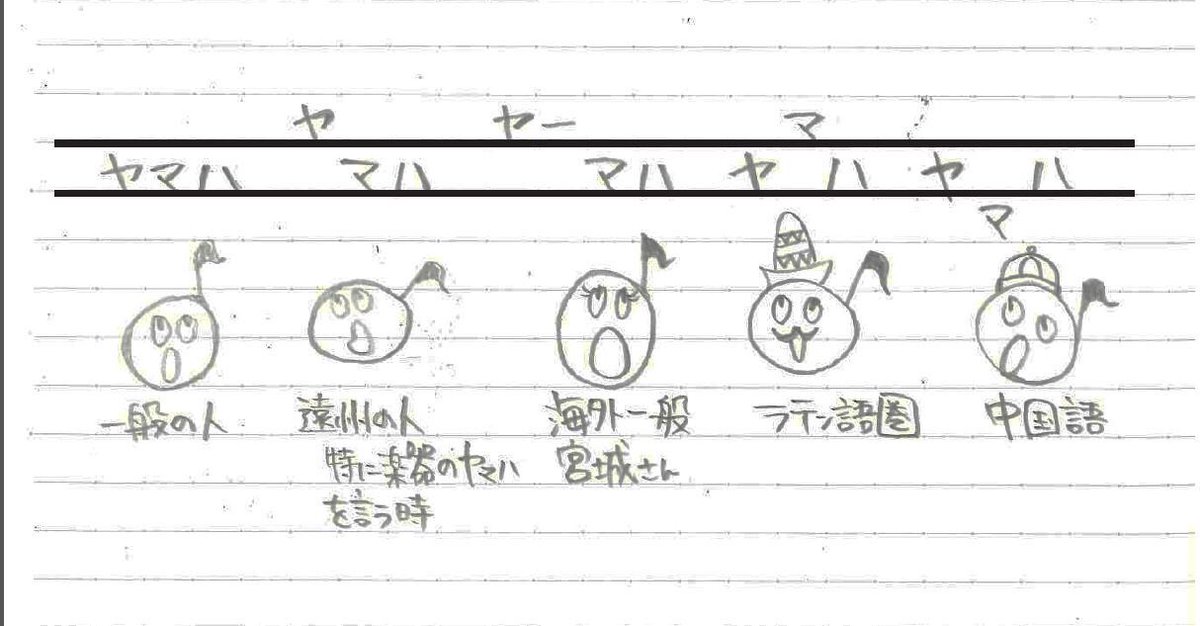 ヤ ヤー マ
ヤマハ マハ マハ ヤ ハ ヤ ハ
マ
一般の人 遠州の人 海外一般 ラテン語圏 中国語
特に楽器のヤマハ 宮城さん
を言う時